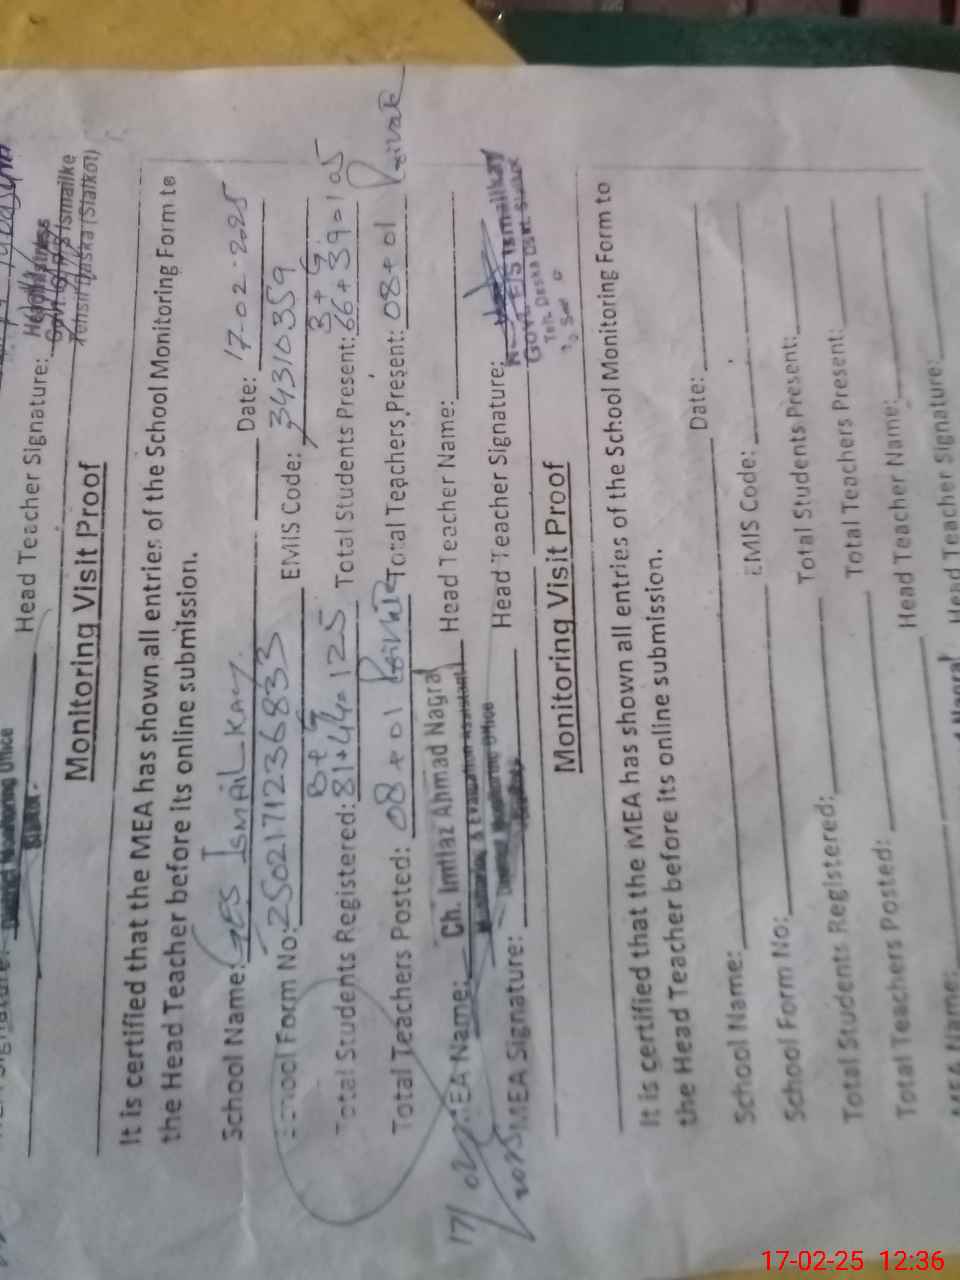 Head Teacher Signature:
Monitoring Visit Proof
It is certified that the MEA has shown all entries of the School Monitoring Form to
the Head Teacher before its online submission.
School Name: GES Ismail Kay. Date: 17-02-2025
School Form No: 2502171236833 EMIS Code: 34310359
B+G B+G
Total Students Registered: 81+44=125 Total Students Present: 66+39=105
Total Teachers Posted: 08+01 Private Total Teachers Present: 08+01 Private
MEA Name: Ch. Imtiaz Ahmad Nagra Head Teacher Name:
MEA Signature: Head Teacher Signature:
17/02/2025
Monitoring Visit Proof
It is certified that the MEA has shown all entries of the School Monitoring Form to
the Head Teacher before its online submission.
School Name: Date:
School Form No: EMIS Code:
Total Students Registered: Total Students Present:
Total Teachers Posted: Total Teachers Present:
MEA Name: Head Teacher Name:
Head Teacher Signature:
17-02-25 12:36